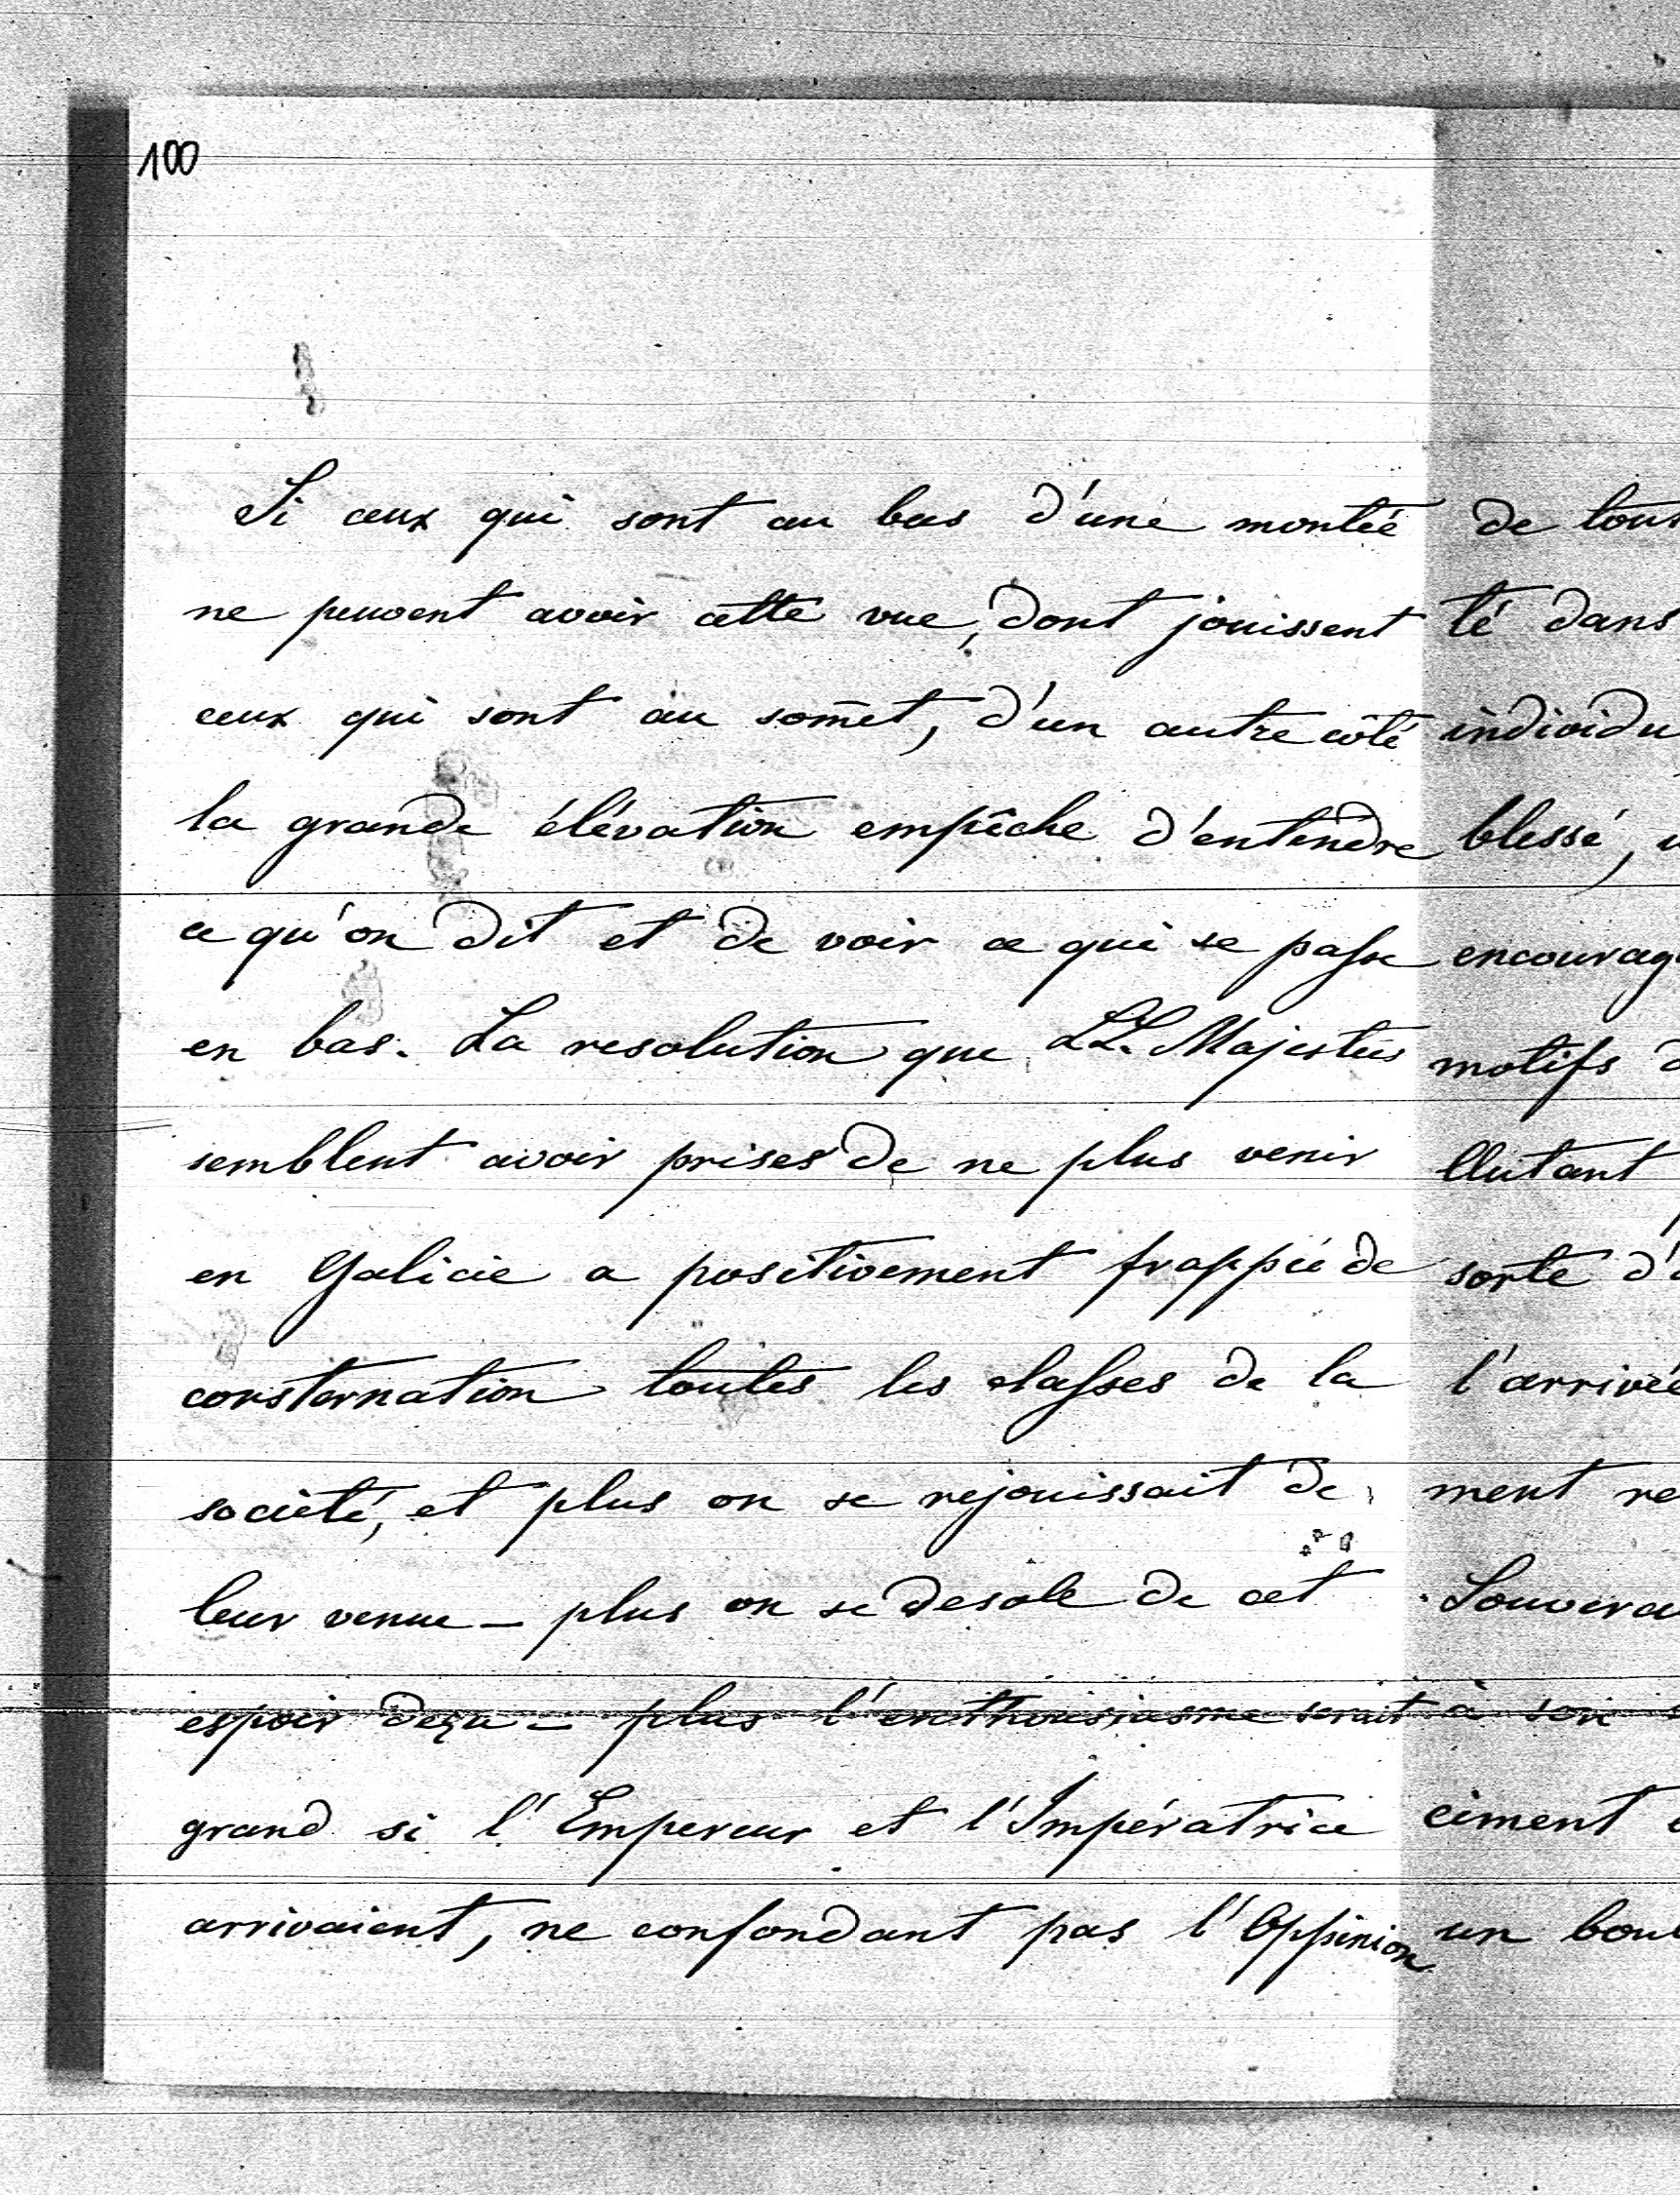 100
Si ceux qui sont au bas d'une montée
ne peuvent avoir cette vue, dont jouissent
ceux qui sont au som̄et, d'un autre côté
la grande élévation empêche d'entendre
ce qu'on dit et de voir ce qui se passe
en bas. La resolution que LL. Majestés
semblent avoir prises de ne plus venir
en Galicie a positivement frappée de
consternation toutes les classes de la
société, et plus on se rejouissait de
leur venue – plus on se desole de cet
espoir deçu – plus l'enthousiasme serait
grand si l'Empereur et l'Impératrice
arrivaient, ne confondant pas l'Oppinion
de tous
té dans
individu
blessé,
encourag
motifs
llutant
sorte d'
l'arrivée
ment re
Souvera
à son
ciment
un bou